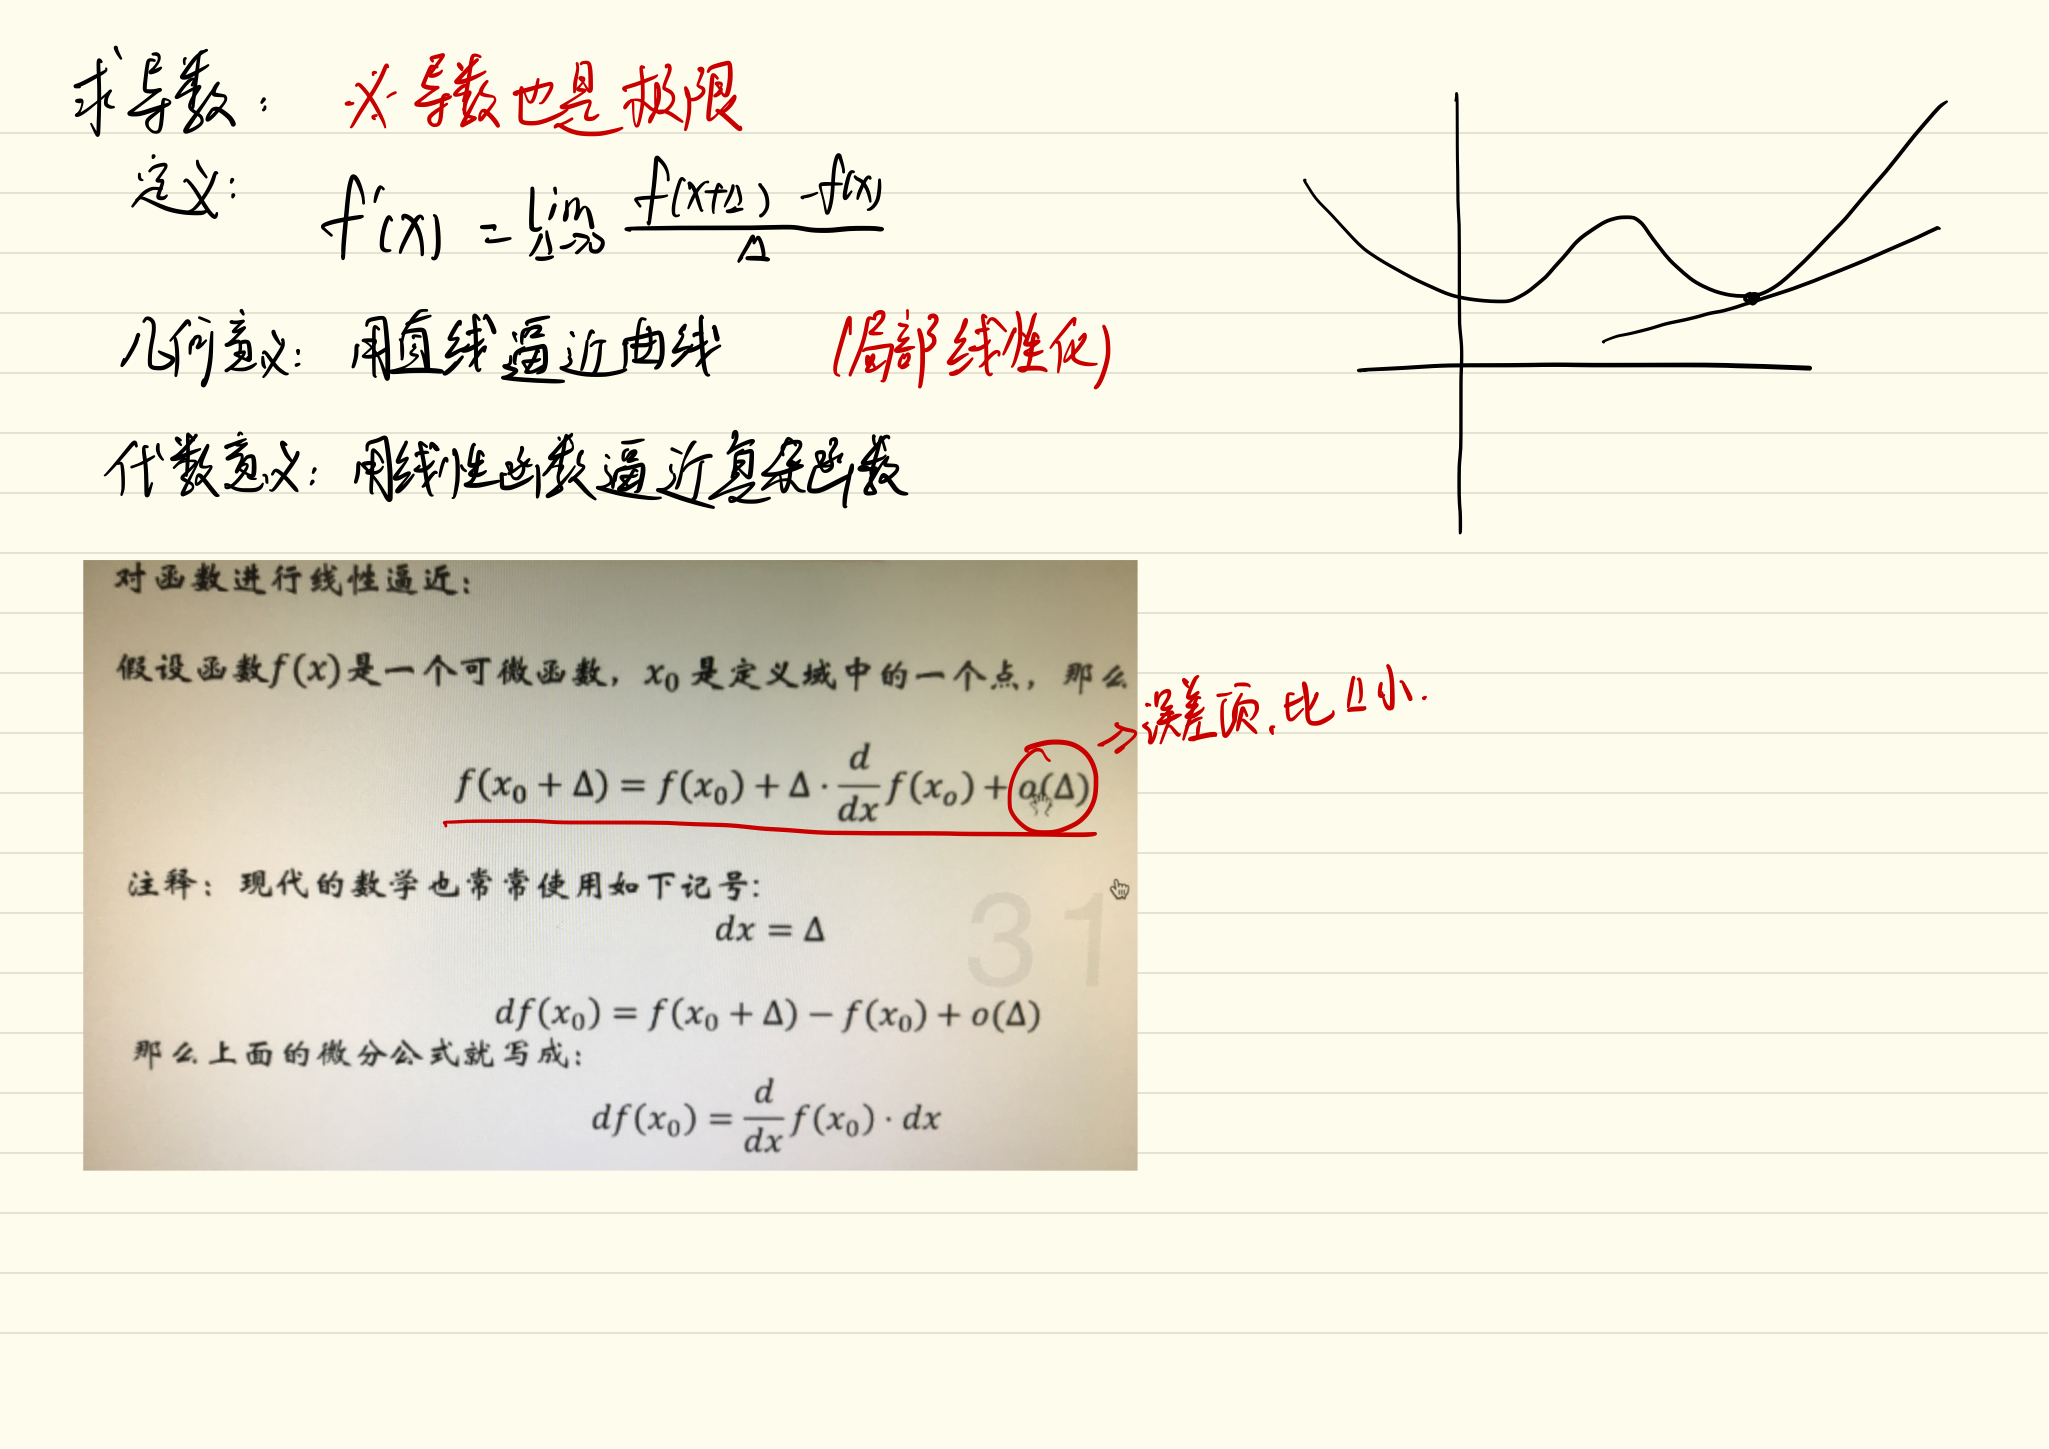 求导数： ※ 导数也是极限
定义： f'(x) = lim Δ→0 f(x+Δ) - f(x) / Δ
几何意义： 用直线逼近曲线 (局部线性化)
代数意义： 用线性函数逼近复杂函数
对函数进行线性逼近：
假设函数f(x)是一个可微函数，x₀是定义域中的一个点，那么
→误差项，比Δ小.
f(x₀ + Δ) = f(x₀) + Δ · d/dx f(xₒ) + o(Δ)
注释：现代的数学也常常使用如下记号：
dx = Δ
31
df(x₀) = f(x₀ + Δ) − f(x₀) + o(Δ)
那么上面的微分公式就写成：
df(x₀) = d/dx f(x₀) · dx